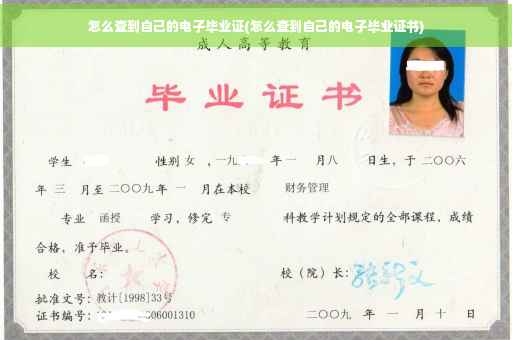 怎么查到自己的电子毕业证(怎么查到自己的电子毕业证书)
成人高等教育
毕业证书
学生 性别 女 ，一九 年 一 月八 日生，于 二〇〇六
年 三 月至 二〇〇九 年 一 月在本校 财务管理
专业 函授 学习，修完 专 科教学计划规定的全部课程，成绩
合格，准予毕业。
校 名： 校（院）长：
批准文号：教计[1998]33号
证书编号： 06001310 二〇〇九 年 一 月 十 日